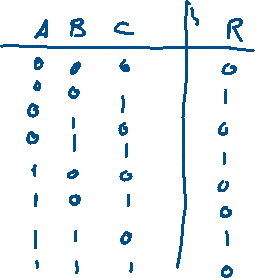 A B C R
0 0 0 0
0 0 1 1
0 1 0 0
0 1 1 1
1 0 0 0
1 0 1 0
1 1 0 1
1 1 1 0